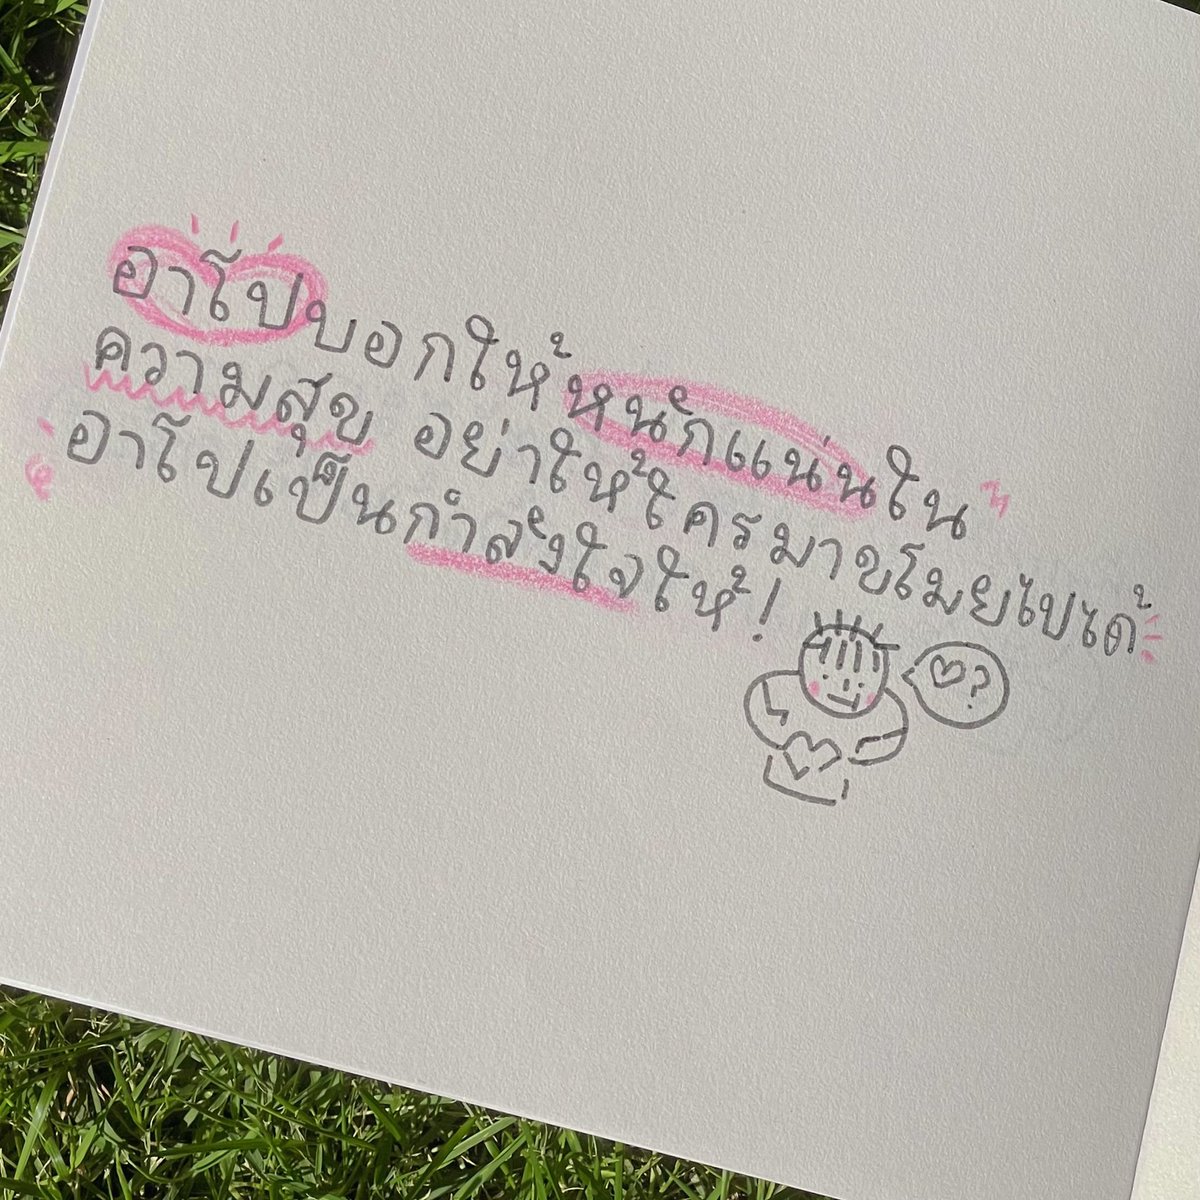 อาโปบอกให้หนักแน่นใน
ความสุข อย่าให้ใครมาขโมยไปได้
อาโปเป็นกำลังใจให้!
♡?